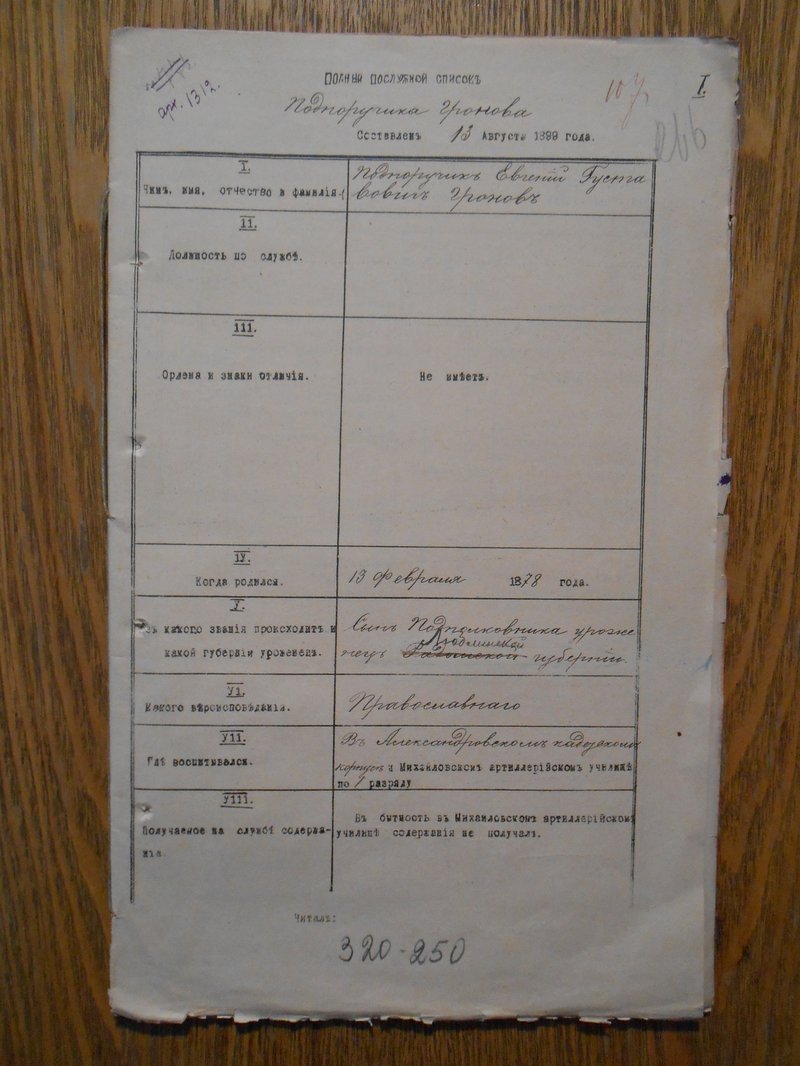 арх. 1312.
I.
Полный послужной списокъ
Подпоручика Гронова
266
Составленъ 13 Августа 1899 года.
I.
Чинъ, имя, отчество и фамилія.
Подпоручикъ Евгеній Густа
вовичъ Гроновъ
II.
Должность по службѣ.
III.
Ордена и знаки отличія.
Не имѣетъ.
IV.
Когда родился.
13 Февраля 1878 года.
V.
Въ какого званія происходитъ и
какой губерніи уроженецъ.
Сынъ Подполковника уроже
нецъ Люблинской губерніи.
VI.
Какого вѣроисповѣданія.
Православнаго
VII.
Гдѣ воспитывался.
Въ Александровскомъ кадетскомъ
корпусѣ и Михайловскомъ артиллерійскомъ училищѣ
по 1 разряду
VIII.
Получаемое на службѣ содержа-
нія.
Въ бытность въ Михайловскомъ артиллерійскомъ
училищѣ содержанія не получалъ.
Читалъ:
320-250